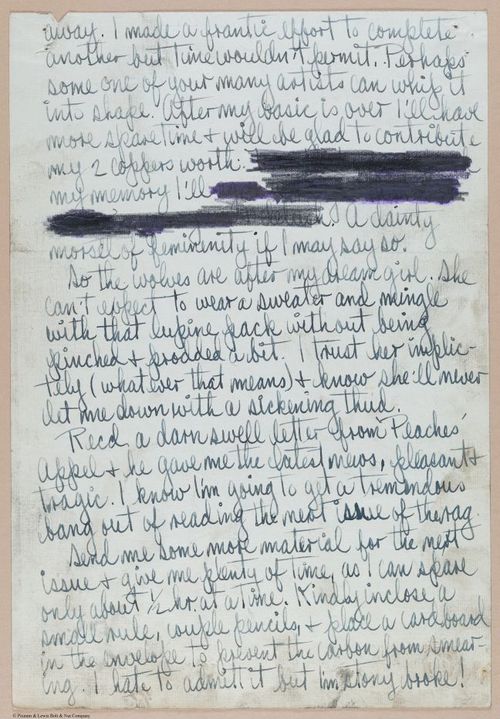 away. I made a frantic effort to complete
another but time wouldn't permit. Perhaps
some one of your many artists can whip it
into shape. After my basic is over I'll have
more spare time & will be glad to contribute
my 2 coppers worth.
my memory I'll
A dainty
morsel of femininity if I may say so.
So the wolves are after my dream girl. She
can't expect to wear a sweater and mingle
with that lupine pack without being
pinched & prodded a bit. I trust her implic-
itly (whatever that means) & know she'll never
let me down with a sickening thud.
Recd a darn swell letter from 'Peaches'
Appel & he gave me the latest news, pleasant &
tragic. I know I'm going to get a tremendous
bang out of reading the next issue of the rag.
Send me some more material for the next
issue & give me plenty of time, as I can spare
only about 1/2 hr. at a time. Kindly inclose a
small rule, couple pencils, & place a cardboard
in the envelope to prevent the carbon from smear-
ing. I hate to admit it but I'm stony broke!
© Pheoll & Lewis Bolt & Nut Company